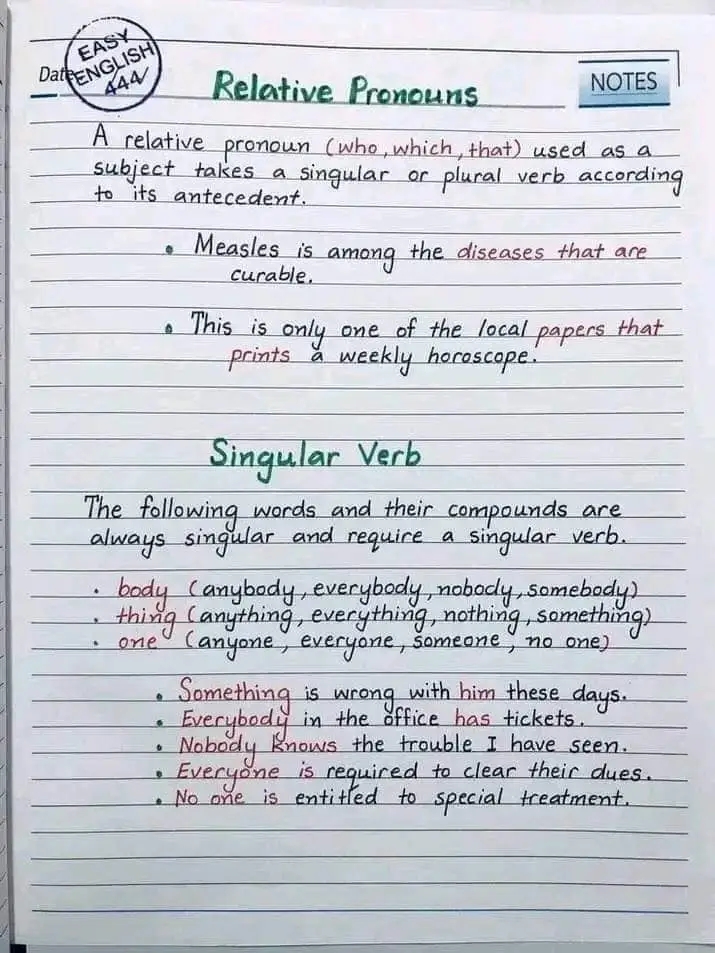 EASY
ENGLISH
444
Date
Relative Pronouns
NOTES
A relative pronoun (who, which, that) used as a
subject takes a singular or plural verb according
to its antecedent.
• Measles is among the diseases that are
curable.
• This is only one of the local papers that
prints a weekly horoscope.
Singular Verb
The following words and their compounds are
always singular and require a singular verb.
• body (anybody, everybody, nobody, somebody)
• thing (anything, everything, nothing, something)
• one (anyone, everyone, someone, no one)
• Something is wrong with him these days.
• Everybody in the office has tickets.
• Nobody knows the trouble I have seen.
• Everyone is required to clear their dues.
• No one is entitled to special treatment.